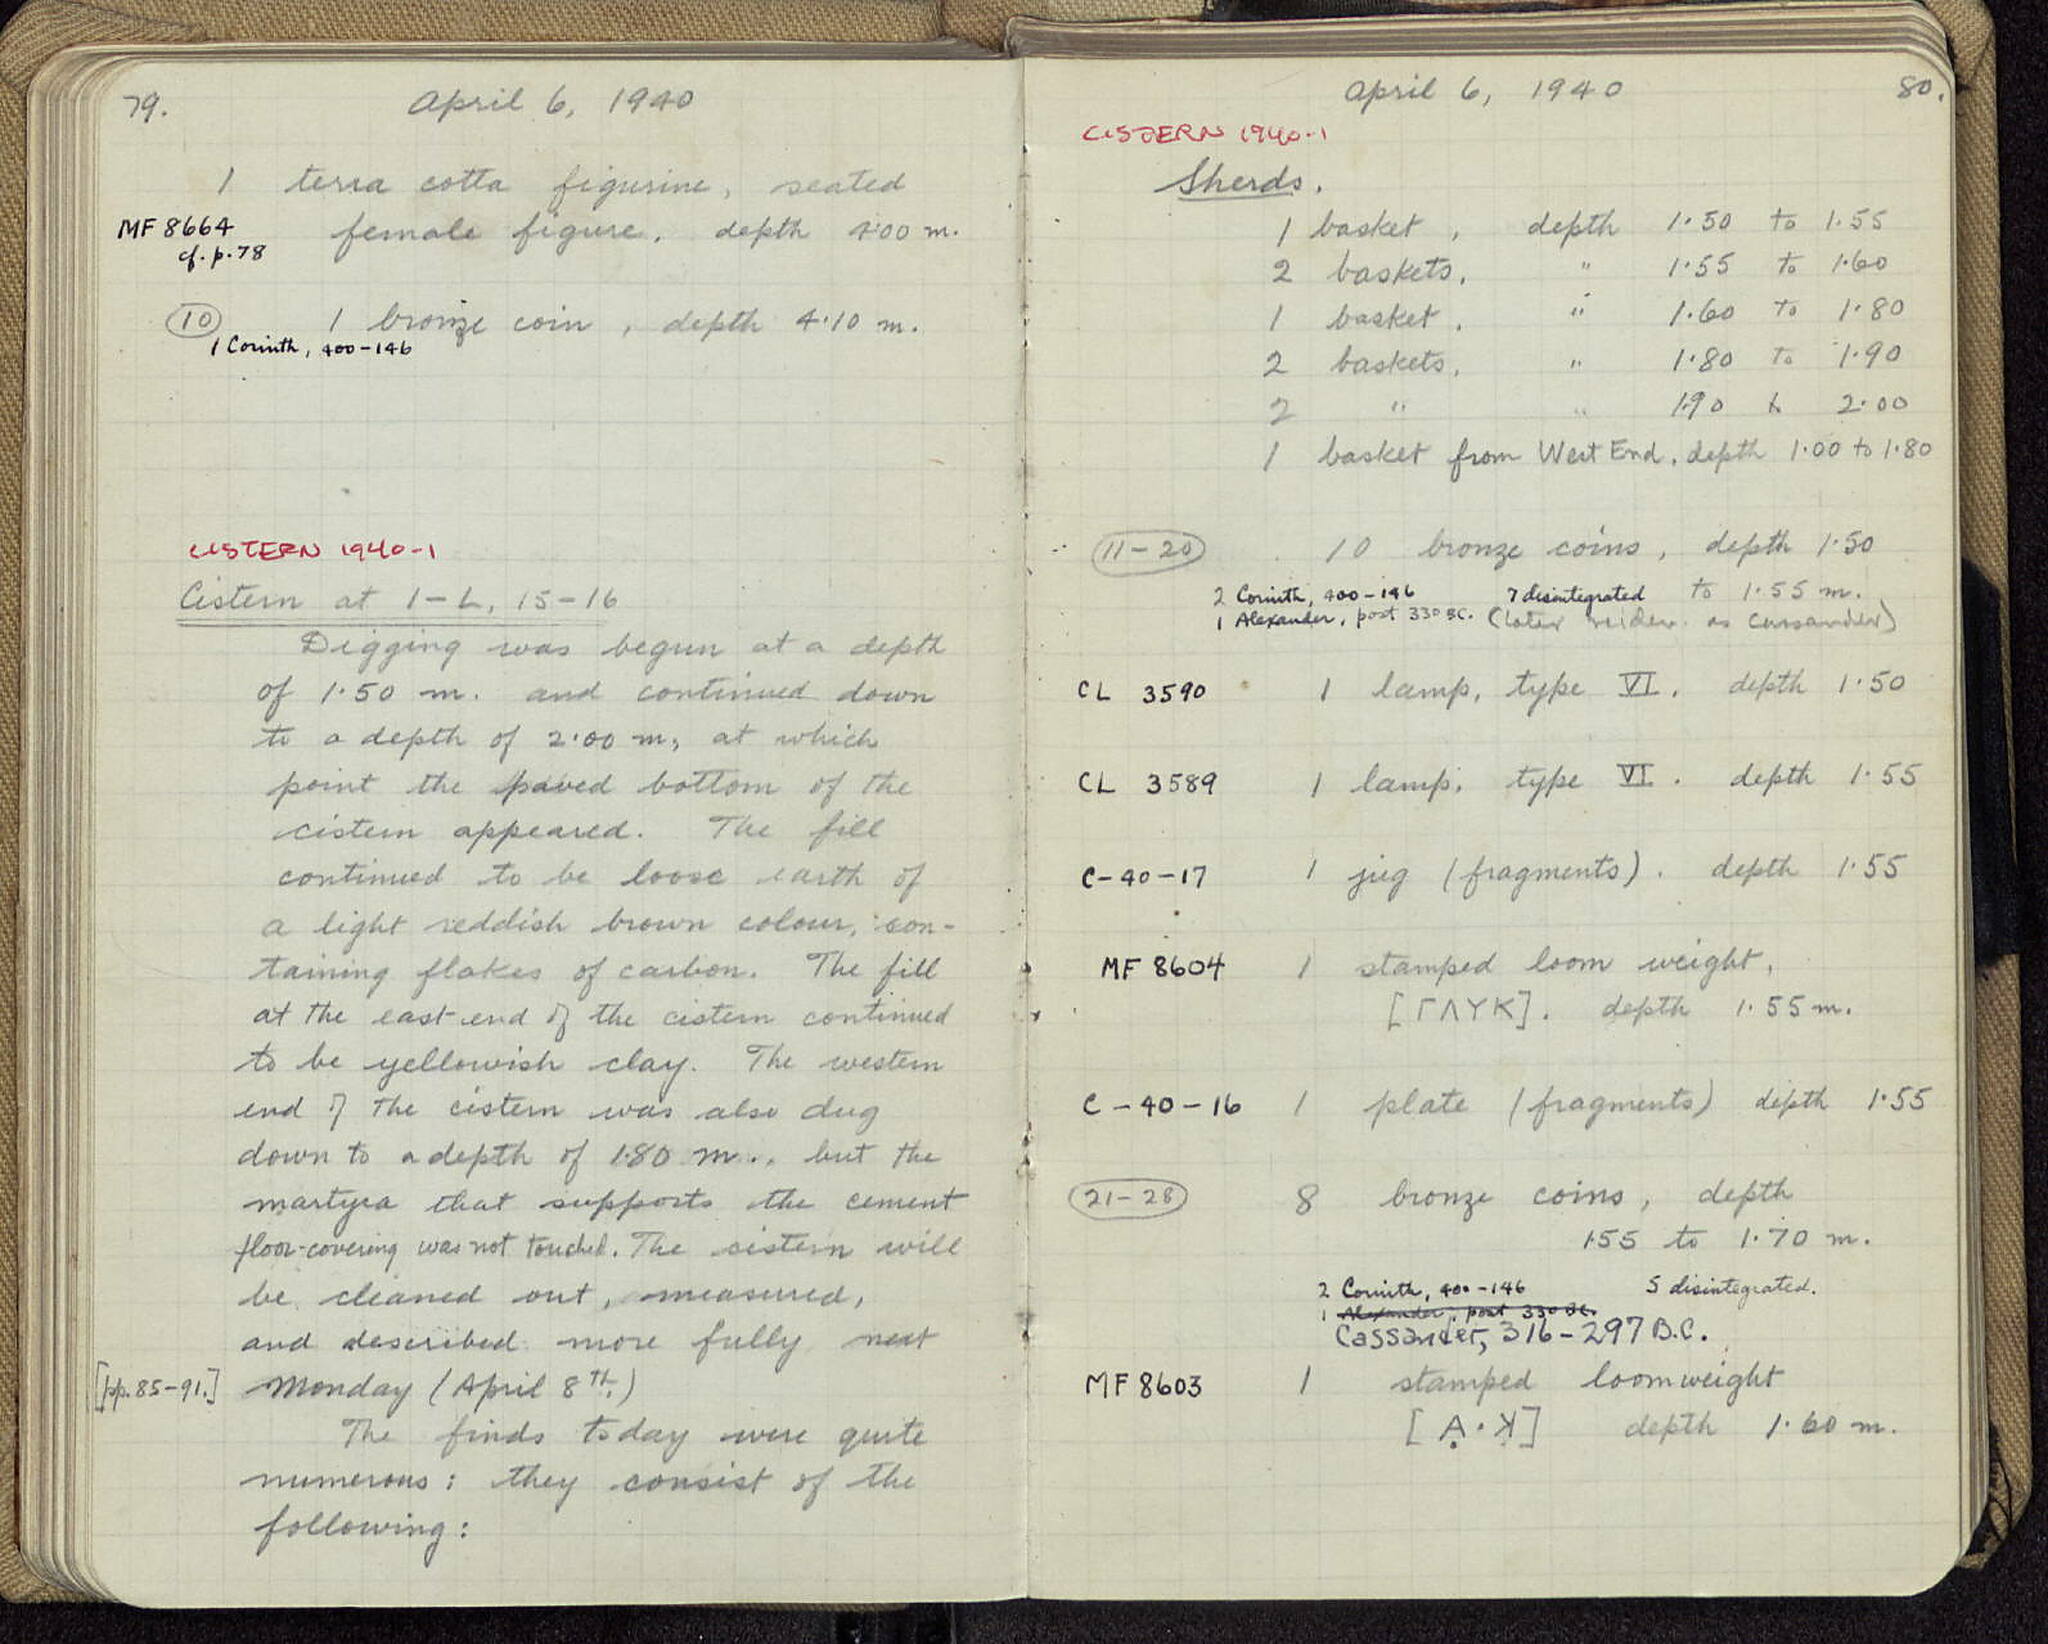 79.
April 6, 1940
1 terra cotta figurine, seated
MF 8664 female figure, depth 4.00 m.
cf. p. 78
10 1 bronze coin, depth 4.10 m.
1 Corinth, 400-146
CISTERN 1940-1
Cistern at I-L, 15-16
Digging was begun at a depth
of 1.50 m. and continued down
to a depth of 2.00 m, at which
point the paved bottom of the
cistern appeared. The fill
continued to be loose earth of
a light reddish brown colour, con-
taining flakes of carbon. The fill
at the east end of the cistern continued
to be yellowish clay. The western
end of the cistern was also dug
down to a depth of 1.80 m., but the
martyra that supports the cement
floor-covering was not touched. The cistern will
be cleaned out, measured,
and described more fully next
[pp. 85-91.] Monday (April 8th.)
The finds today were quite
numerous: they consist of the
following:
April 6, 1940
80.
CISTERN 1940-1
Sherds.
1 basket, depth 1.50 to 1.55
2 baskets, " 1.55 to 1.60
1 basket, " 1.60 to 1.80
2 baskets, " 1.80 to 1.90
2 " " 1.90 to 2.00
1 basket from West End, depth 1.00 to 1.80
11-20 10 bronze coins, depth 1.50
2 Corinth, 400-146 7 disintegrated to 1.55 m.
1 Alexander, post 330 BC. (later as Cassander)
CL 3590 1 lamp, type VI. depth 1.50
CL 3589 1 lamp, type VI. depth 1.55
C-40-17 1 jug (fragments). depth 1.55
MF 8604 1 stamped loom weight,
[ΓΛΥΚ]. depth 1.55 m.
C-40-16 1 plate (fragments) depth 1.55
21-28 8 bronze coins, depth
1.55 to 1.70 m.
2 Corinth, 400-146 5 disintegrated.
1 Alexander, post 330 BC.
Cassander, 316-297 B.C.
MF 8603 1 stamped loomweight
[Α·Κ] depth 1.60 m.